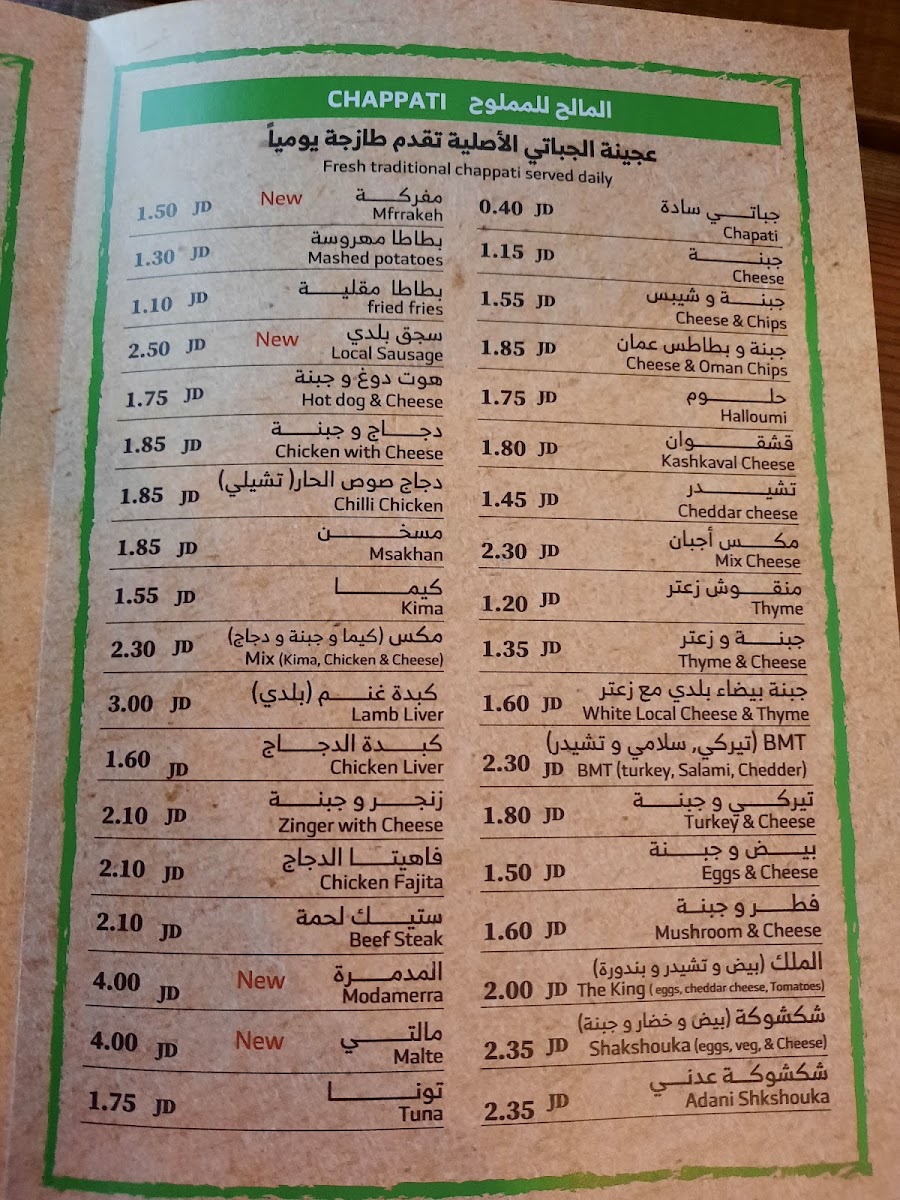 CHAPPATI المالح للمملوح
عجينة الجباتي الأصلية تقدم طازجة يومياً
Fresh traditional chappati served daily
جباتي سادة
0.40 JD
Chapati
جبنة
1.15 JD
Cheese
جبنة و شيبس
1.55 JD
Cheese & Chips
جبنة و بطاطس عمان
1.85 JD
Cheese & Oman Chips
حلوم
1.75 JD
Halloumi
قشقوان
1.80 JD
Kashkaval Cheese
تشيدر
1.45 JD
Cheddar cheese
مكس أجبان
2.30 JD
Mix Cheese
منقوش زعتر
1.20 JD
Thyme
جبنة و زعتر
1.35 JD
Thyme & Cheese
جبنة بيضاء بلدي مع زعتر
1.60 JD
White Local Cheese & Thyme
BMT (تيركي, سلامي و تشيدر)
2.30 JD
BMT (turkey, Salami, Chedder)
تيركي و جبنة
1.80 JD
Turkey & Cheese
بيض و جبنة
1.50 JD
Eggs & Cheese
فطر و جبنة
1.60 JD
Mushroom & Cheese
الملك (بيض و تشيدر و بندورة)
2.00 JD
The King ( eggs, cheddar cheese, Tomatoes)
شكشوكة (بيض و خضار و جبنة)
2.35 JD
Shakshouka (eggs, veg, & Cheese)
شكشوكة عدني
2.35 JD
Adani Shkshouka
مفركة
1.50 JD New
Mfrrakeh
بطاطا مهروسة
1.30 JD
Mashed potatoes
بطاطا مقلية
1.10 JD
fried fries
سجق بلدي
2.50 JD New
Local Sausage
هوت دوغ و جبنة
1.75 JD
Hot dog & Cheese
دجاج و جبنة
1.85 JD
Chicken with Cheese
دجاج صوص الحار( تشيلي)
1.85 JD
Chilli Chicken
مسخن
1.85 JD
Msakhan
كيما
1.55 JD
Kima
مكس (كيما و جبنة و دجاج)
2.30 JD
Mix (Kima, Chicken & Cheese)
كبدة غنم (بلدي)
3.00 JD
Lamb Liver
كبدة الدجاج
1.60 JD
Chicken Liver
زنجر و جبنة
2.10 JD
Zinger with Cheese
فاهيتا الدجاج
2.10 JD
Chicken Fajita
ستيك لحمة
2.10 JD
Beef Steak
المدمرة
4.00 JD New
Modamerra
مالتي
4.00 JD New
Malte
تونا
1.75 JD
Tuna